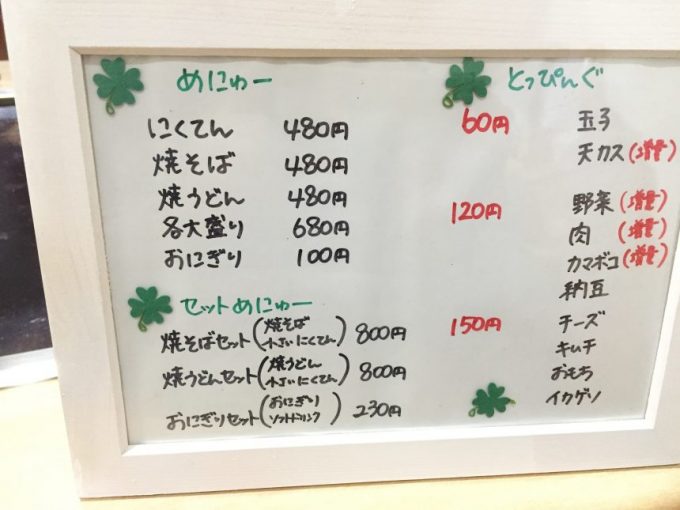 めにゅー
にくてん 480円
焼そば 480円
焼うどん 480円
各大盛り 680円
おにぎり 100円
セットめにゅー
焼そばセット(焼そば 小さいにくてん) 800円
焼うどんセット(焼うどん 小さいにくてん) 800円
おにぎりセット(おにぎり ソフトドリンク) 230円
とっぴんぐ
60円 玉子
天カス(増量)
120円 野菜(増量)
肉(増量)
カマボコ(増量)
納豆
150円 チーズ
キムチ
おもち
イカゲソ